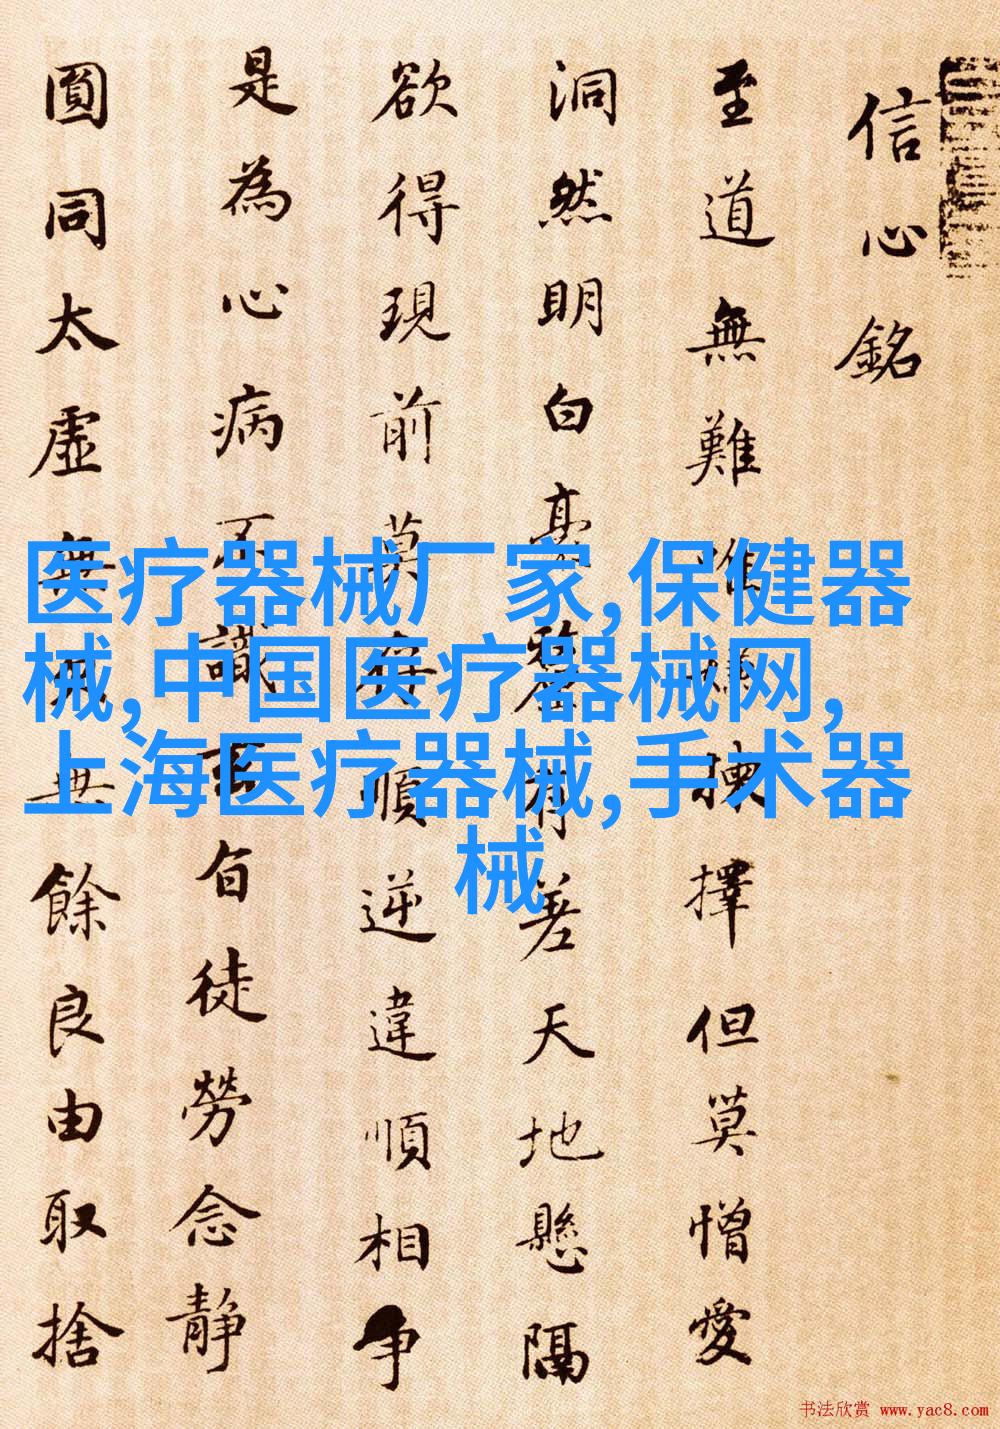 信心銘
至道無難唯嫌揀擇但莫憎愛
洞然明白毫釐有差天地懸隔
欲得現前莫存順逆違順相争
是為心病不識玄旨徒勞念静
圓同太虛無欠無餘良由取捨
医疗器械厂家,保健器
械,中国医疗器械网,
上海医疗器械,手术器
械
书法欣赏 www.yac8.com